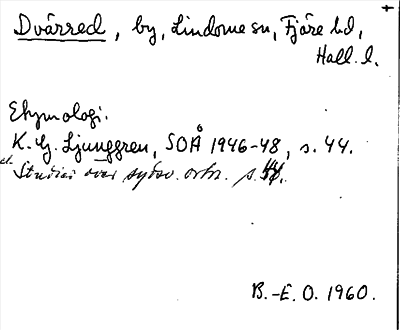 +
Dvärred, by, Lindome sn, Fjäre hd,
Hall. l.
Etymologi.
K. G. Ljunggren, SOÅ 1946-48, s. 44.
Studier över sydsv. ortn. s.
B.-E. O. 1960.